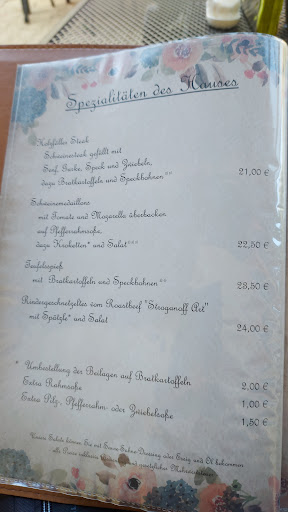 Spezialitäten des Hauses
Holzfäller Steak
Schweinesteak gefüllt mit
Senf, Gurke, Speck und Zwiebeln,
dazu Bratkartoffeln und Speckbohnen** 21,00 €
Schweinemedaillons
mit Tomate und Mozarella überbacken
auf Pfefferrahmsoße,
dazu Kroketten* und Salat*** 22,50 €
mit Bratkartoffeln und Speckbohnen** 23,50 €
Rindergeschnetzeltes vom Roastbeef "Stroganoff Art"
mit Spätzle* und Salat 24,00 €
* Umbestellung der Beilagen auf Bratkartoffeln 2,00 €
Extra Rahmsoße 1,00 €
Extra Pilz-, Pfefferrahm- oder Zwiebelsoße 1,50 €
Unsere Salate können Sie mit Dressing oder Essig und Öl bekommen
alle Preise inklusive und gesetzlicher Mehrwertsteuer